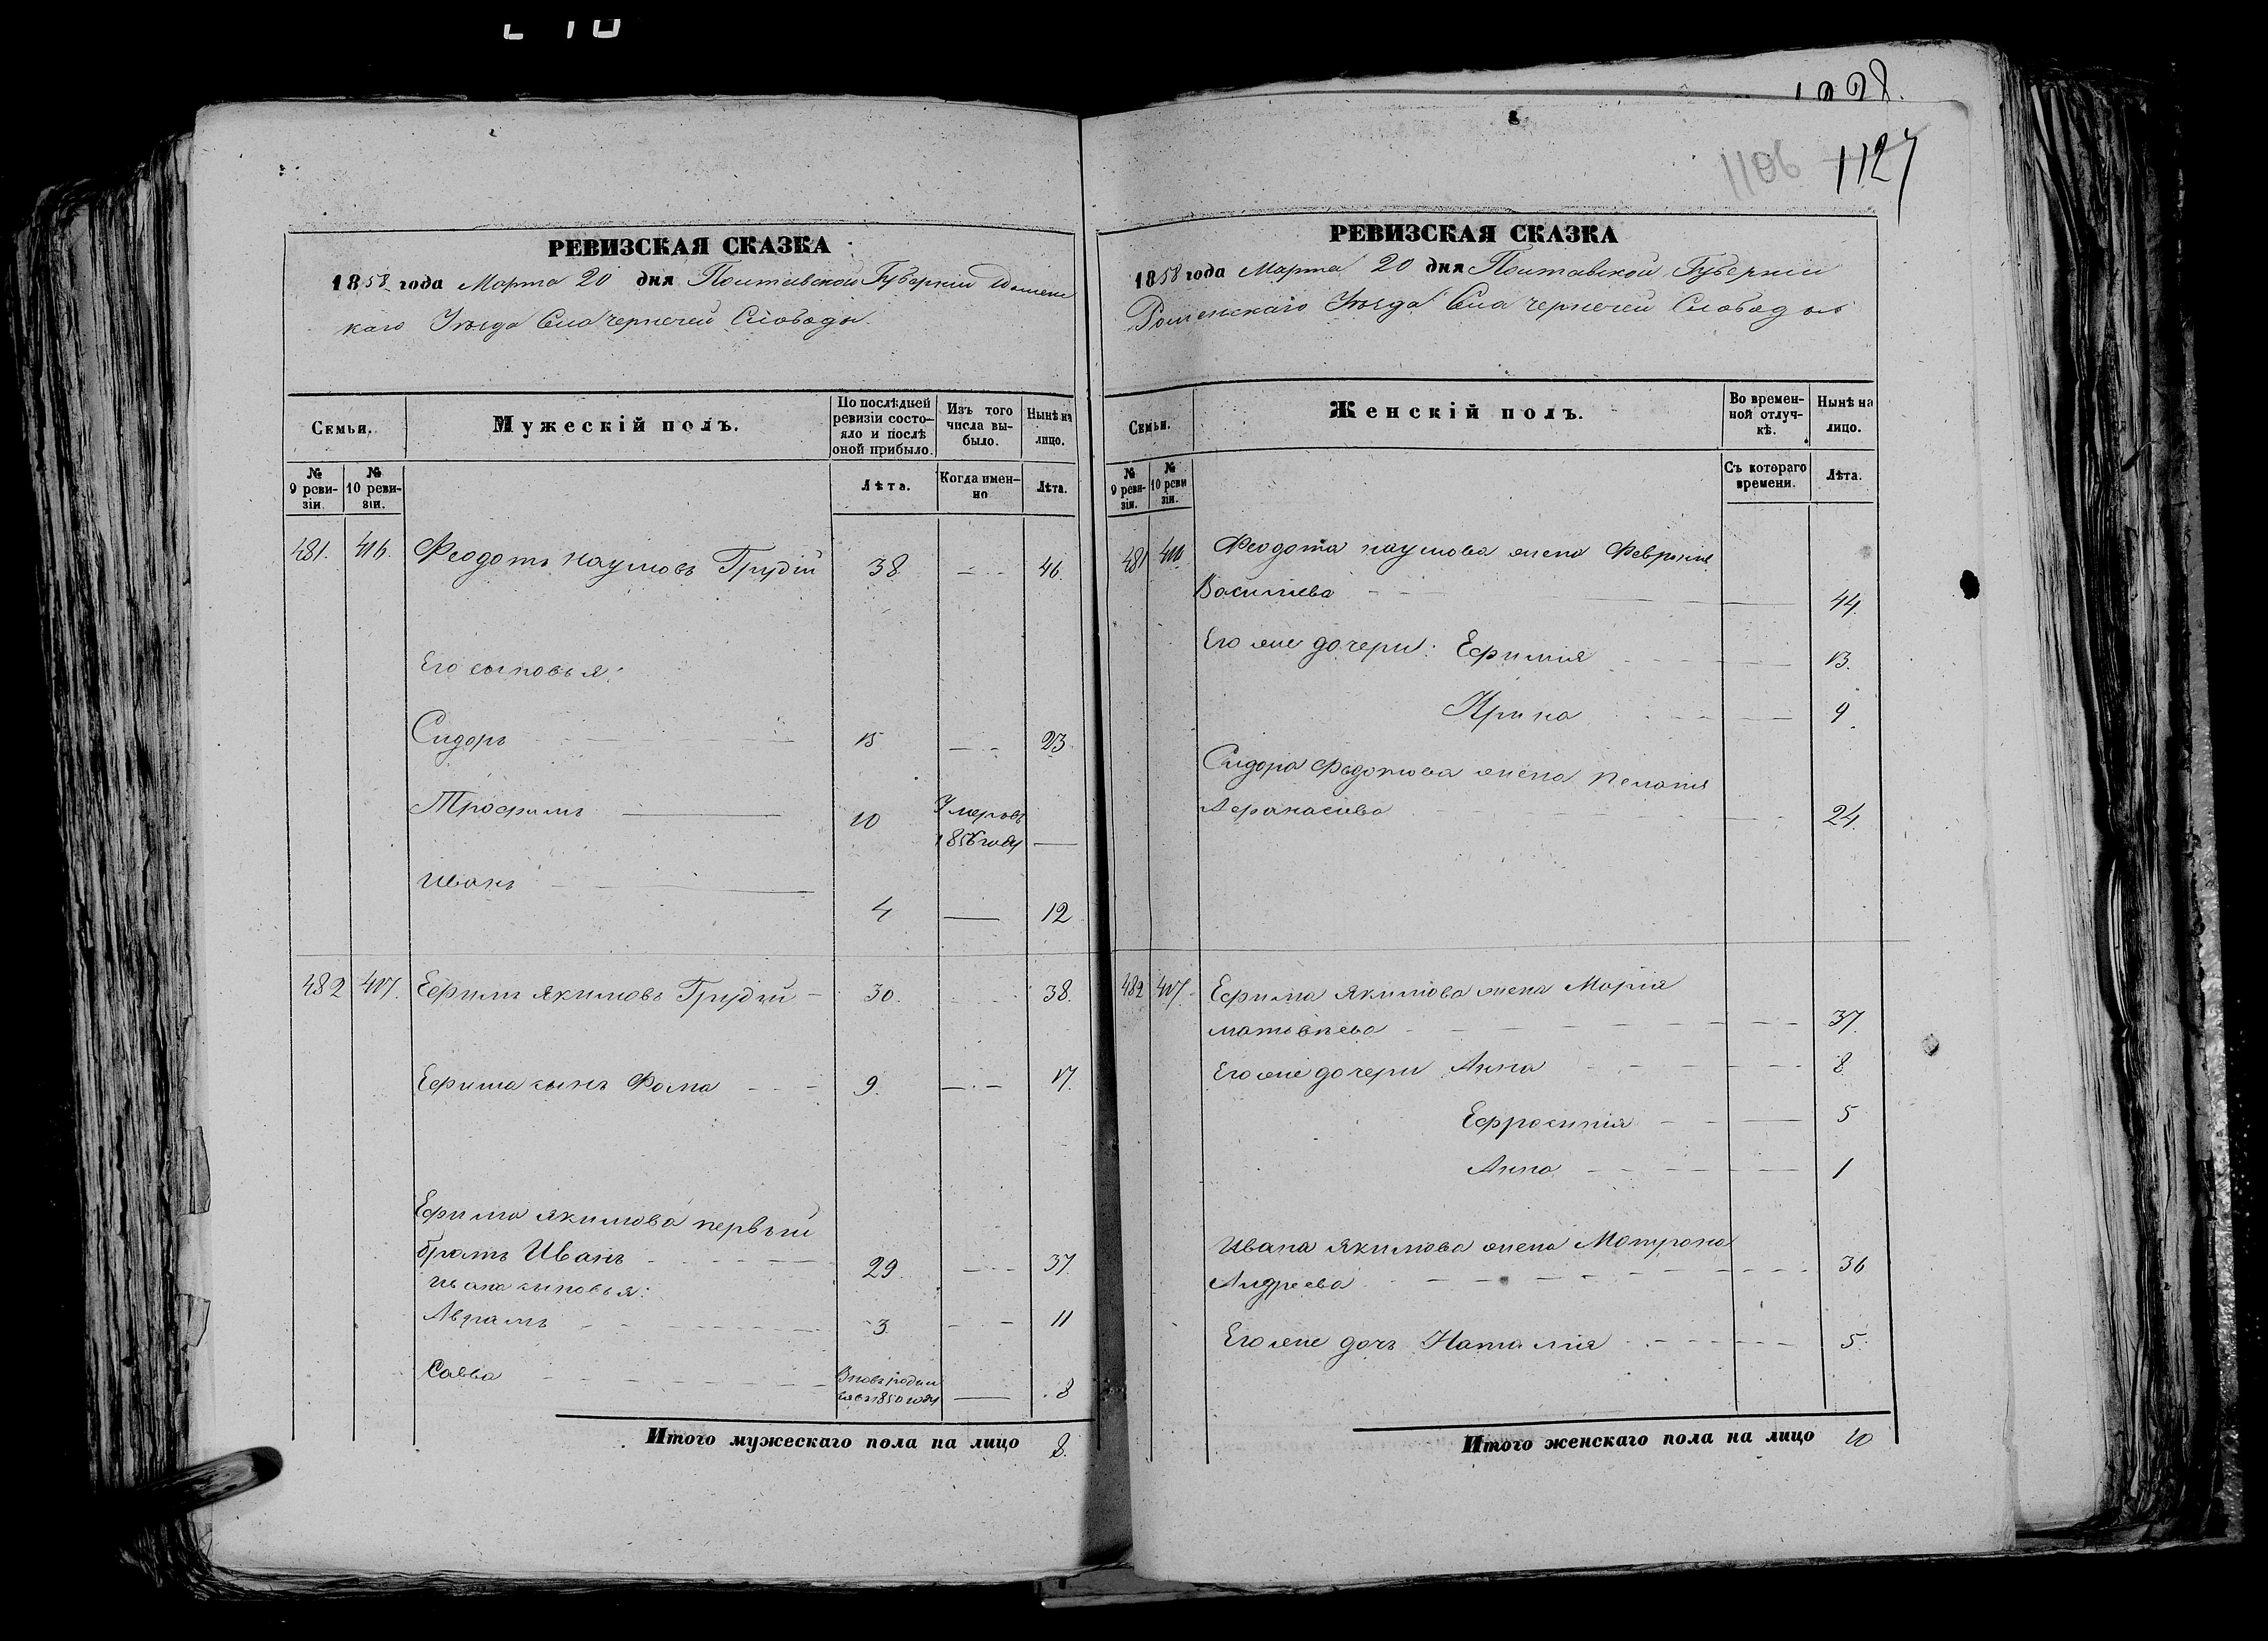 1128.
1106 1127
РЕВИЗСКАЯ СКАЗКА
1858 года Марта 20 дня Полтавской Губерніи Ромен
скаго Уѣзда Села Чернечей Слободы.
Семьи.
Мужескій полъ.
По послѣдней ревизіи состояло и послѣ оной прибыло.
Изъ того числа выбыло.
Нынѣ на лицо.
№ 9 ревизіи.
№ 10 ревизіи.
Лѣта.
Когда именно
Лѣта.
481. 416. Феодотъ Наумовъ Грудій 38 46.
Его сыновья:
Сидоръ 15 23
Трофимъ 10 Умеръ въ 1856 году
Иванъ 4 12
482 417. Ефимъ Якимовъ Грудій 30. 38.
Ефима сынъ Фома 9. 17.
Ефима Якимова первый
братъ Иванъ 29. 37.
Ивана сыновья:
Аврамъ 3. 11
Савва Вновь родил
ся въ 1850 году 8
Итого мужескаго пола на лицо 8.
РЕВИЗСКАЯ СКАЗКА
1858 года Марта 20 дня Полтавской Губерніи
Роменскаго Уѣзда Села Чернечей Слободы
Семьи.
Женскій полъ.
Во временной отлучкѣ.
Нынѣ на лицо.
№ 9 ревизіи.
№ 10 ревизіи.
Съ котораго времени.
Лѣта.
481 416 Феодота Наумова жена Февронія
Василіева 44.
Его же дочери: Ефимія 13.
Ирина 9.
Сидора Федотова жена Пелагія
Афанасіева 24.
482 417. Ефима Якимова жена Марія
Матвѣева 37.
Его же дочери Анна 8
Ефросинія 5
Анна 1
Ивана Якимова жена Матрона
Андреева 36
Его же дочь Наталія 5.
Итого женскаго пола на лицо 10